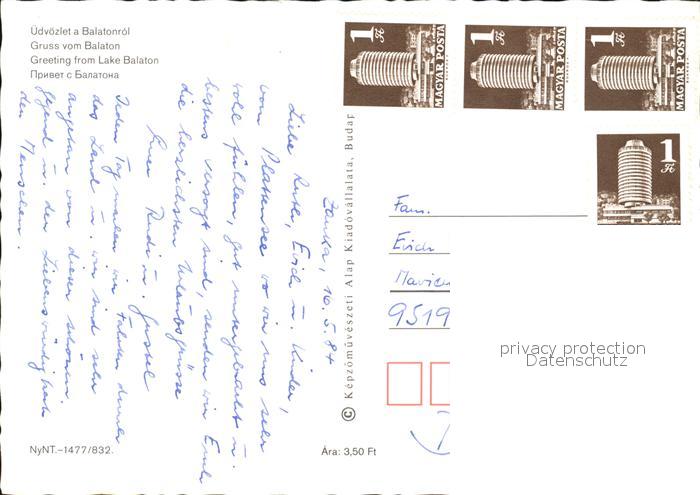 Üdvözlet a Balatonról
Gruss vom Balaton
Greeting from Lake Balaton
Привет с Балатона
Zánka, 16.5.84
Liebe Ruth, Erich u. Kinder,
vom Plattensee wo wir uns sehr
wohl fühlen, gut untergebracht u.
bestens versorgt sind, senden wir Euch
die herzlichsten Urlaubsgrüsse
Eure Rudi u. Gustel
Jeden Tag machen wir Fahrten durch
das Land u. wir sind sehr
angetan von dieser schönen
Gegend u. der Liebenswürdigkeit
der Menschen.
NyNT.–1477/832.
Ára: 3,50 Ft
© Képzőművészeti Alap Kiadóvállalata, Budap
1 Ft
MAGYAR POSTA
1 Ft
MAGYAR POSTA
1 Ft
MAGYAR POSTA
1 Ft
Fam.
Erich
9519
privacy protection
Datenschutz